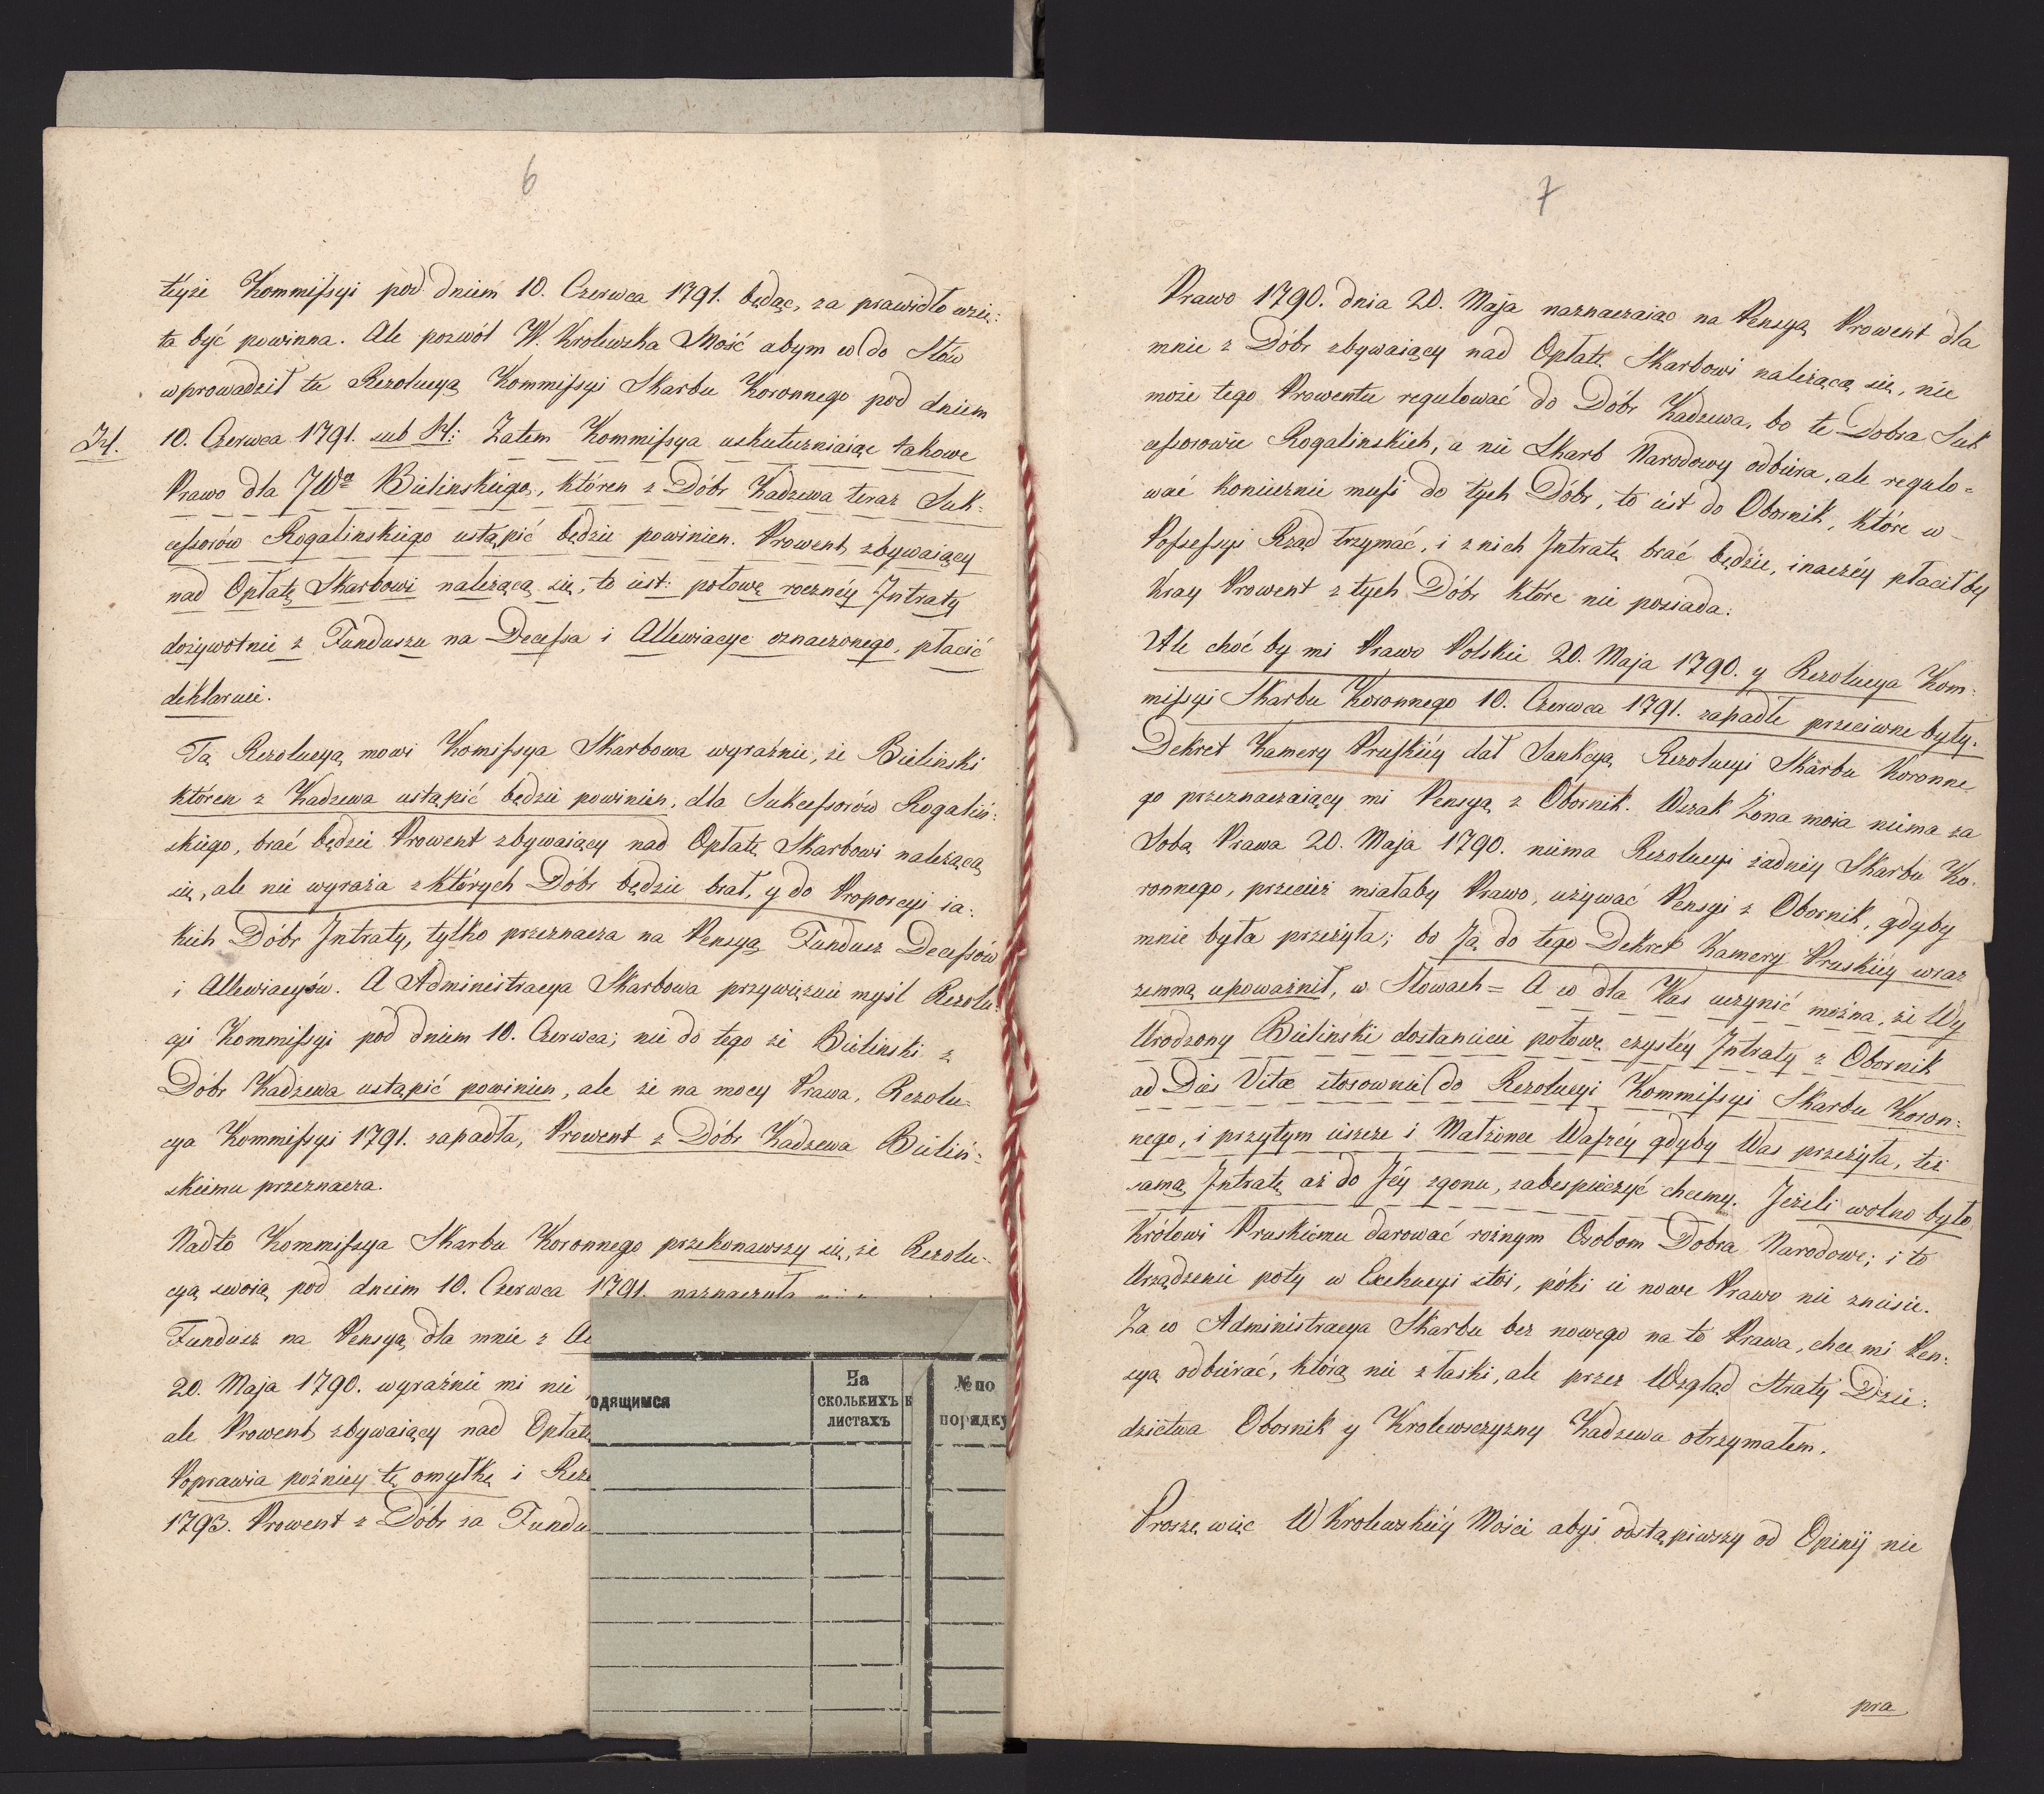 6
teyże Kommiſsyi pod dniem 10. Czerwca 1791. będąc, za prawidło wzię:
ta być powinna. Ale pozwól W. Krolewska Mość abym co do Słów
wprowadził tu Rezolucyą Kommiſsyi Skarbu Koronnego pod dniem
10. Czerwca 1791. sub Zatem Kommiſsya uskuteczniaiąc takowe
Prawo dla JWo Bielinskiego, któren z Dóbr Kadzewa teraz Suk-
ceſsorów Rogalinskiego ustąpić będzie powinien. Prowent zbywaiący
nad Opłatę Skarbowi należącą się, to iest: połowę roczney Jntraty
dożywotnie z Funduszu na Deceſsa i Allewiacye oznaczonego, płacić
deklaruie.
Tą Rezolucyą mowi Komiſsya Skarbowa wyraźnie, że Bielinski
któren z Kadzewa ustąpić będzie powinien, dla Sukceſsorów Rogaliń:
skiego, brać będzie Prowent zbywaiący nad Opłatę Skarbowi należącą
się, ale nie wyraża z których Dóbr będzie brał, y do Proporcyi ia:
kich Dóbr Jntraty, tylko przeznacza na Pensyą Fundusz Deceſsów
i Allewiacyów. A Administracya Skarbowa przywięzuie myśl Rezolu:
cyi Kommiſsyi pod dniem 10. Czerwca; nie do tego że Bielinski z
Dóbr Kadzewa ustąpić powinien, ale że na mocy Prawa, Rezolu-
cya Kommiſsyi 1791. zapadła, Prowent z Dóbr Kadzewa Bieliń:
skiemu przeznacza.
Nadto Kommiſsya Skarbu Koronnego przekonawszy się, że Rezolu-
cyą swoią pod dniem 10. Czerwca 1791. naznaczyła
Fundusz na Pensyą dla mnie z
20. Maja 1790. wyraźnie mi nie
ale Prowent zbywaiący nad Opłatę
Poprawia poźniey tę omyłkę i
1793. Prowent z Dóbr za
одящимся
На
сколькихъ
листахъ
№ по
порядку
7
Prawo 1790. dnia 20. Maja naznaczaiąc na Pensyą Prowent dla
mnie z Dóbr zbywaiący nad Opłatę Skarbowi należącą się, nie
może tego Prowentu regulować do Dóbr Kadzewa, bo te Dobra Suk
ceſsorowie Rogalinskich, a nie Skarb Narodowy odbiera, ale regulo=
wać koniecznie musi do tych Dóbr, to iest do Obornik, które w
Poſseſsyi Rząd trzymać, i z nich Jntratę brać będzie, inaczéy płaciłby
Kray Prowent z tych Dóbr które nie posiada.
Ale choć by mi Prawo Polskie 20. Maja 1790. y Rezolucya Kom:
miſsyi Skarbu Koronnego 10. Czerwca 1791. zapadłe przeciwne były.
Dekret Kamery Pruskiéy dał Sankcyą Rezolucyi Skarbu Koronne
go przeznaczaiący mi Pensyą z Obornik. Wszak Żona moia niema za
Sobą Prawa 20. Maja 1790. niema Rezolucyi żadnéy Skarbu Ko-
ronnego, przecież miałaby Prawo, używać Pensyi z Obornik, gdyby
mnie była przeżyła; bo Ją do tego Dekret Kamery Pruskiéy wraz
zemną upoważnił, w Słowach = A co dla Was uczynić można, że Wy
Urodzony Bielinski dostaniecie połowę czystéy Jntraty z Obornik
ad Dies Vitæ stosownie do Rezolucyi Kommiſsyi Skarbu Koron:
nego, i przytym ieszcze i Małżonce Waſzéy gdyby Was przeżyła, też
samą Jntratę aż do Jéy zgonu, zabespieczyć chcemy. Jeżeli wolno było
Królowi Pruskiemu darować rożnym Osobom Dobra Narodowe; i to
Urządzenie poty w Exekucyi stoi, póki ie nowe Prawo nie zniesie.
Za co Administracya Skarbu bez nowego na to Prawa, chce mi Pen:
syą odbierać, którą nie z łaski, ale przez Wzgląd Straty Dzie:
dzictwa Obornik y Krolewsczyzny Kadzewa otrzymałem.
Proszę więc W Krolewskiéy Mości abyś odstąpiwszy od Opinij nie
pra